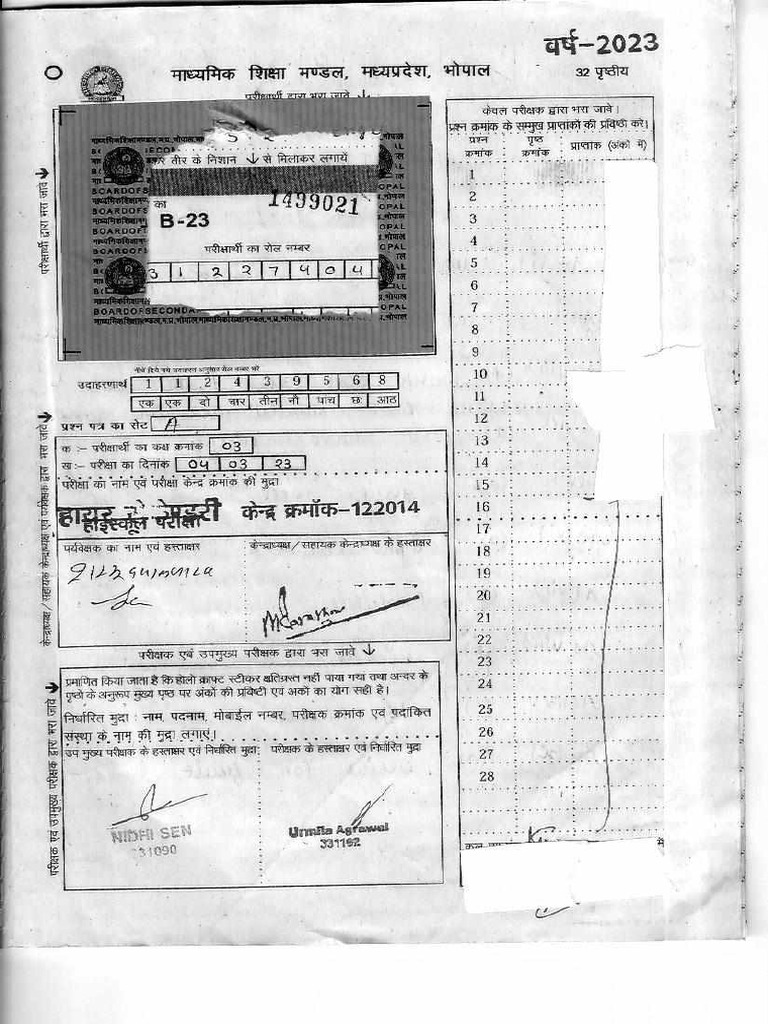 वर्ष-2023
माध्यमिक शिक्षा मण्डल, मध्यप्रदेश, भोपाल
32 पृष्ठीय
परीक्षार्थी द्वारा भरा जावे ↓
तीर के निशान ↓ से मिलाकर लगायें
का
1499021
B-23
परीक्षार्थी का रोल नम्बर
3 1 2 2 7 4 0 4
BOARD OF SECONDA
परीक्षार्थी द्वारा भरा जावे
नीचे दिये गये उदाहरण अनुसार रोल नम्बर भरें
उदाहरणार्थ 1 1 2 4 3 9 5 6 8
एक एक दो चार तीन नौ पांच छः आठ
प्रश्न पत्र का सेट A
क :- परीक्षार्थी का कक्ष क्रमांक 03
ख :- परीक्षा का दिनांक 04 03 23
परीक्षा का नाम एवं परीक्षा केन्द्र क्रमांक की मुद्रा
हायर सेकेण्डरी केन्द्र क्रमॉक-122014
हाईस्कूल परीक्षा
पर्यवेक्षक का नाम एवं हस्ताक्षर
केन्द्राध्यक्ष / सहायक केन्द्राध्यक्ष के हस्ताक्षर
केन्द्राध्यक्ष / सहायक केन्द्राध्यक्ष एवं पर्यवेक्षक द्वारा भरा जावे
परीक्षक एवं उपमुख्य परीक्षक द्वारा भरा जावे ↓
प्रमाणित किया जाता है कि होलो क्राफ्ट स्टीकर क्षतिग्रस्त नहीं पाया गया तथा अन्दर के
पृष्ठों के अनुरूप मुख्य पृष्ठ पर अंकों की प्रविष्टी एवं अंकों का योग सही है।
निर्धारित मुद्रा : नाम, पदनाम, मोबाईल नम्बर, परीक्षक क्रमांक एवं पदांकित
संस्था के नाम की मुद्रा लगाएं।
उप मुख्य परीक्षक के हस्ताक्षर एवं निर्धारित मुद्रा:
परीक्षक के हस्ताक्षर एवं निर्धारित मुद्रा
NIDHI SEN
31090
Urmila Agrawal
331192
परीक्षक एवं उपमुख्य परीक्षक द्वारा भरा जावे
केवल परीक्षक द्वारा भरा जावे।
प्रश्न क्रमांक के सम्मुख प्राप्तांकों की प्रविष्ठी करें।
प्रश्न क्रमांक
पृष्ठ क्रमांक
प्राप्तांक (अंकों में)
1
2
3
4
5
6
7
8
9
10
11
12
13
14
15
16
17
18
19
20
21
22
23
24
25
26
27
28
में